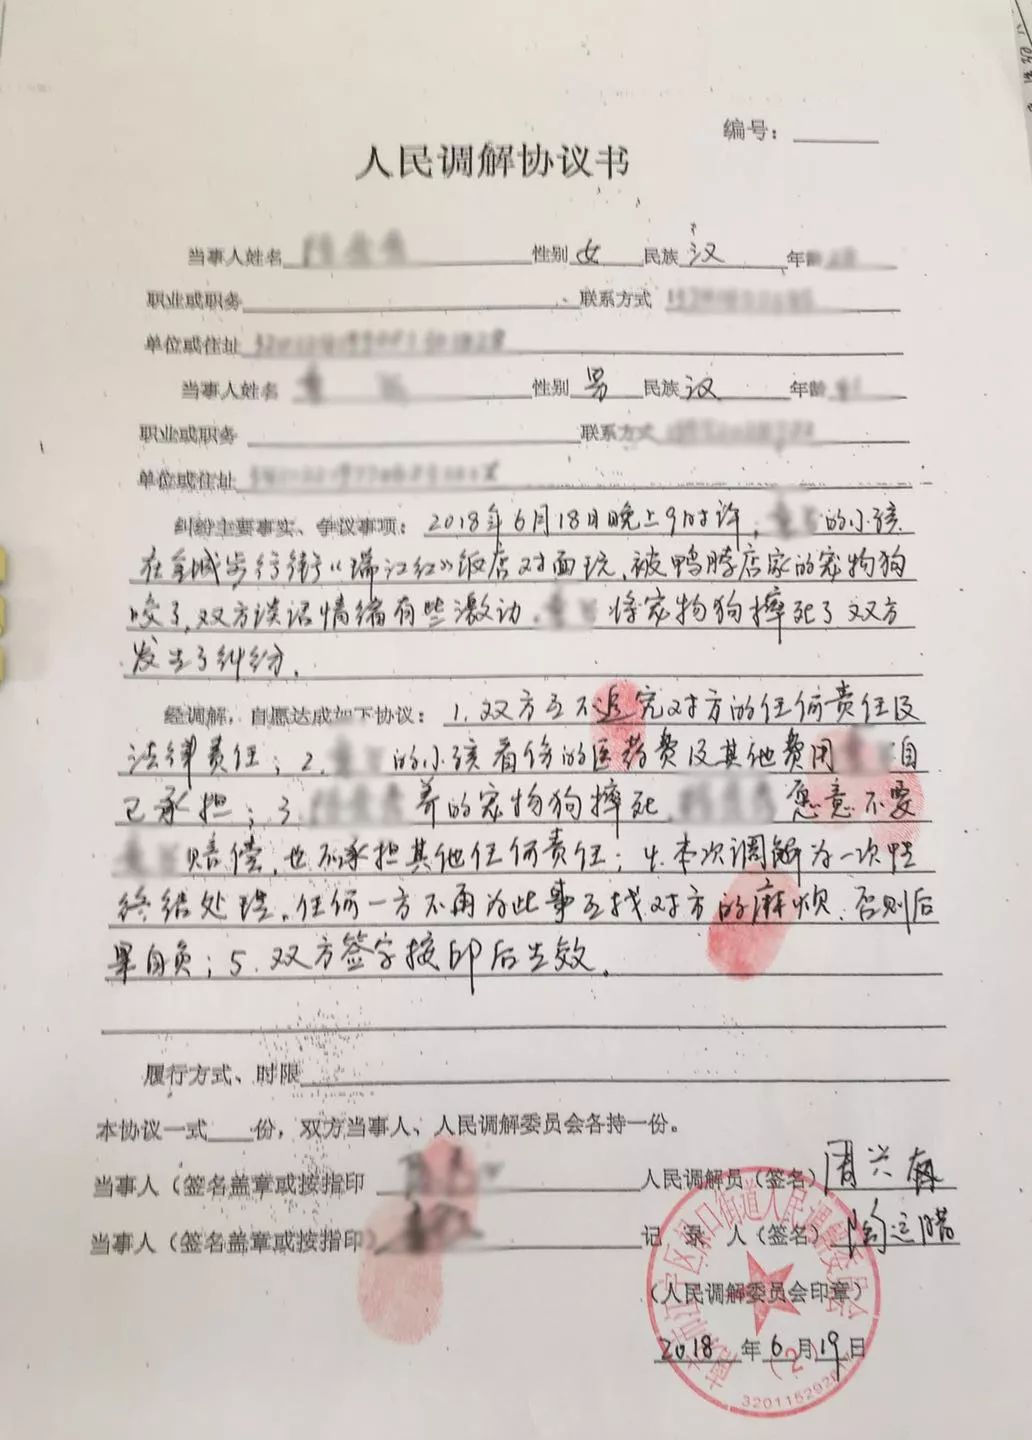 编号：
人民调解协议书
当事人姓名 性别 女 民族 汉 年龄
职业或职务 联系方式
单位或住址
当事人姓名 性别 男 民族 汉 年龄
职业或职务 联系方式
单位或住址
纠纷主要事实、争议事项：2018年6月18日晚上9时许， 的小孩
在金城步行街《瑞江红》饭店对面玩，被鸭脖店家的宠物狗
咬了，双方谈话情绪有些激动， 将宠物狗摔死了双方
发生了纠纷。
经调解，自愿达成如下协议：1.双方互不追究对方的任何责任及
法律责任；2. 的小孩看伤的医药费及其他费用 自
己承担；3. 养的宠物狗摔死， 愿意不要
赔偿，也不承担其他任何责任；4.本次调解为一次性
终结处理，任何一方不再为此事互找对方的麻烦，否则后
果自负；5.双方签字按印后生效。
履行方式、时限
本协议一式 份，双方当事人、人民调解委员会各持一份。
当事人（签名盖章或按指印 人民调解员（签名）周兴
当事人（签名盖章或按指印） 记 录 人（签名）
（人民调解委员会印章）
2018 年 6 月 19 日
南京市江宁区禄口街道人民调解委员会
（2）